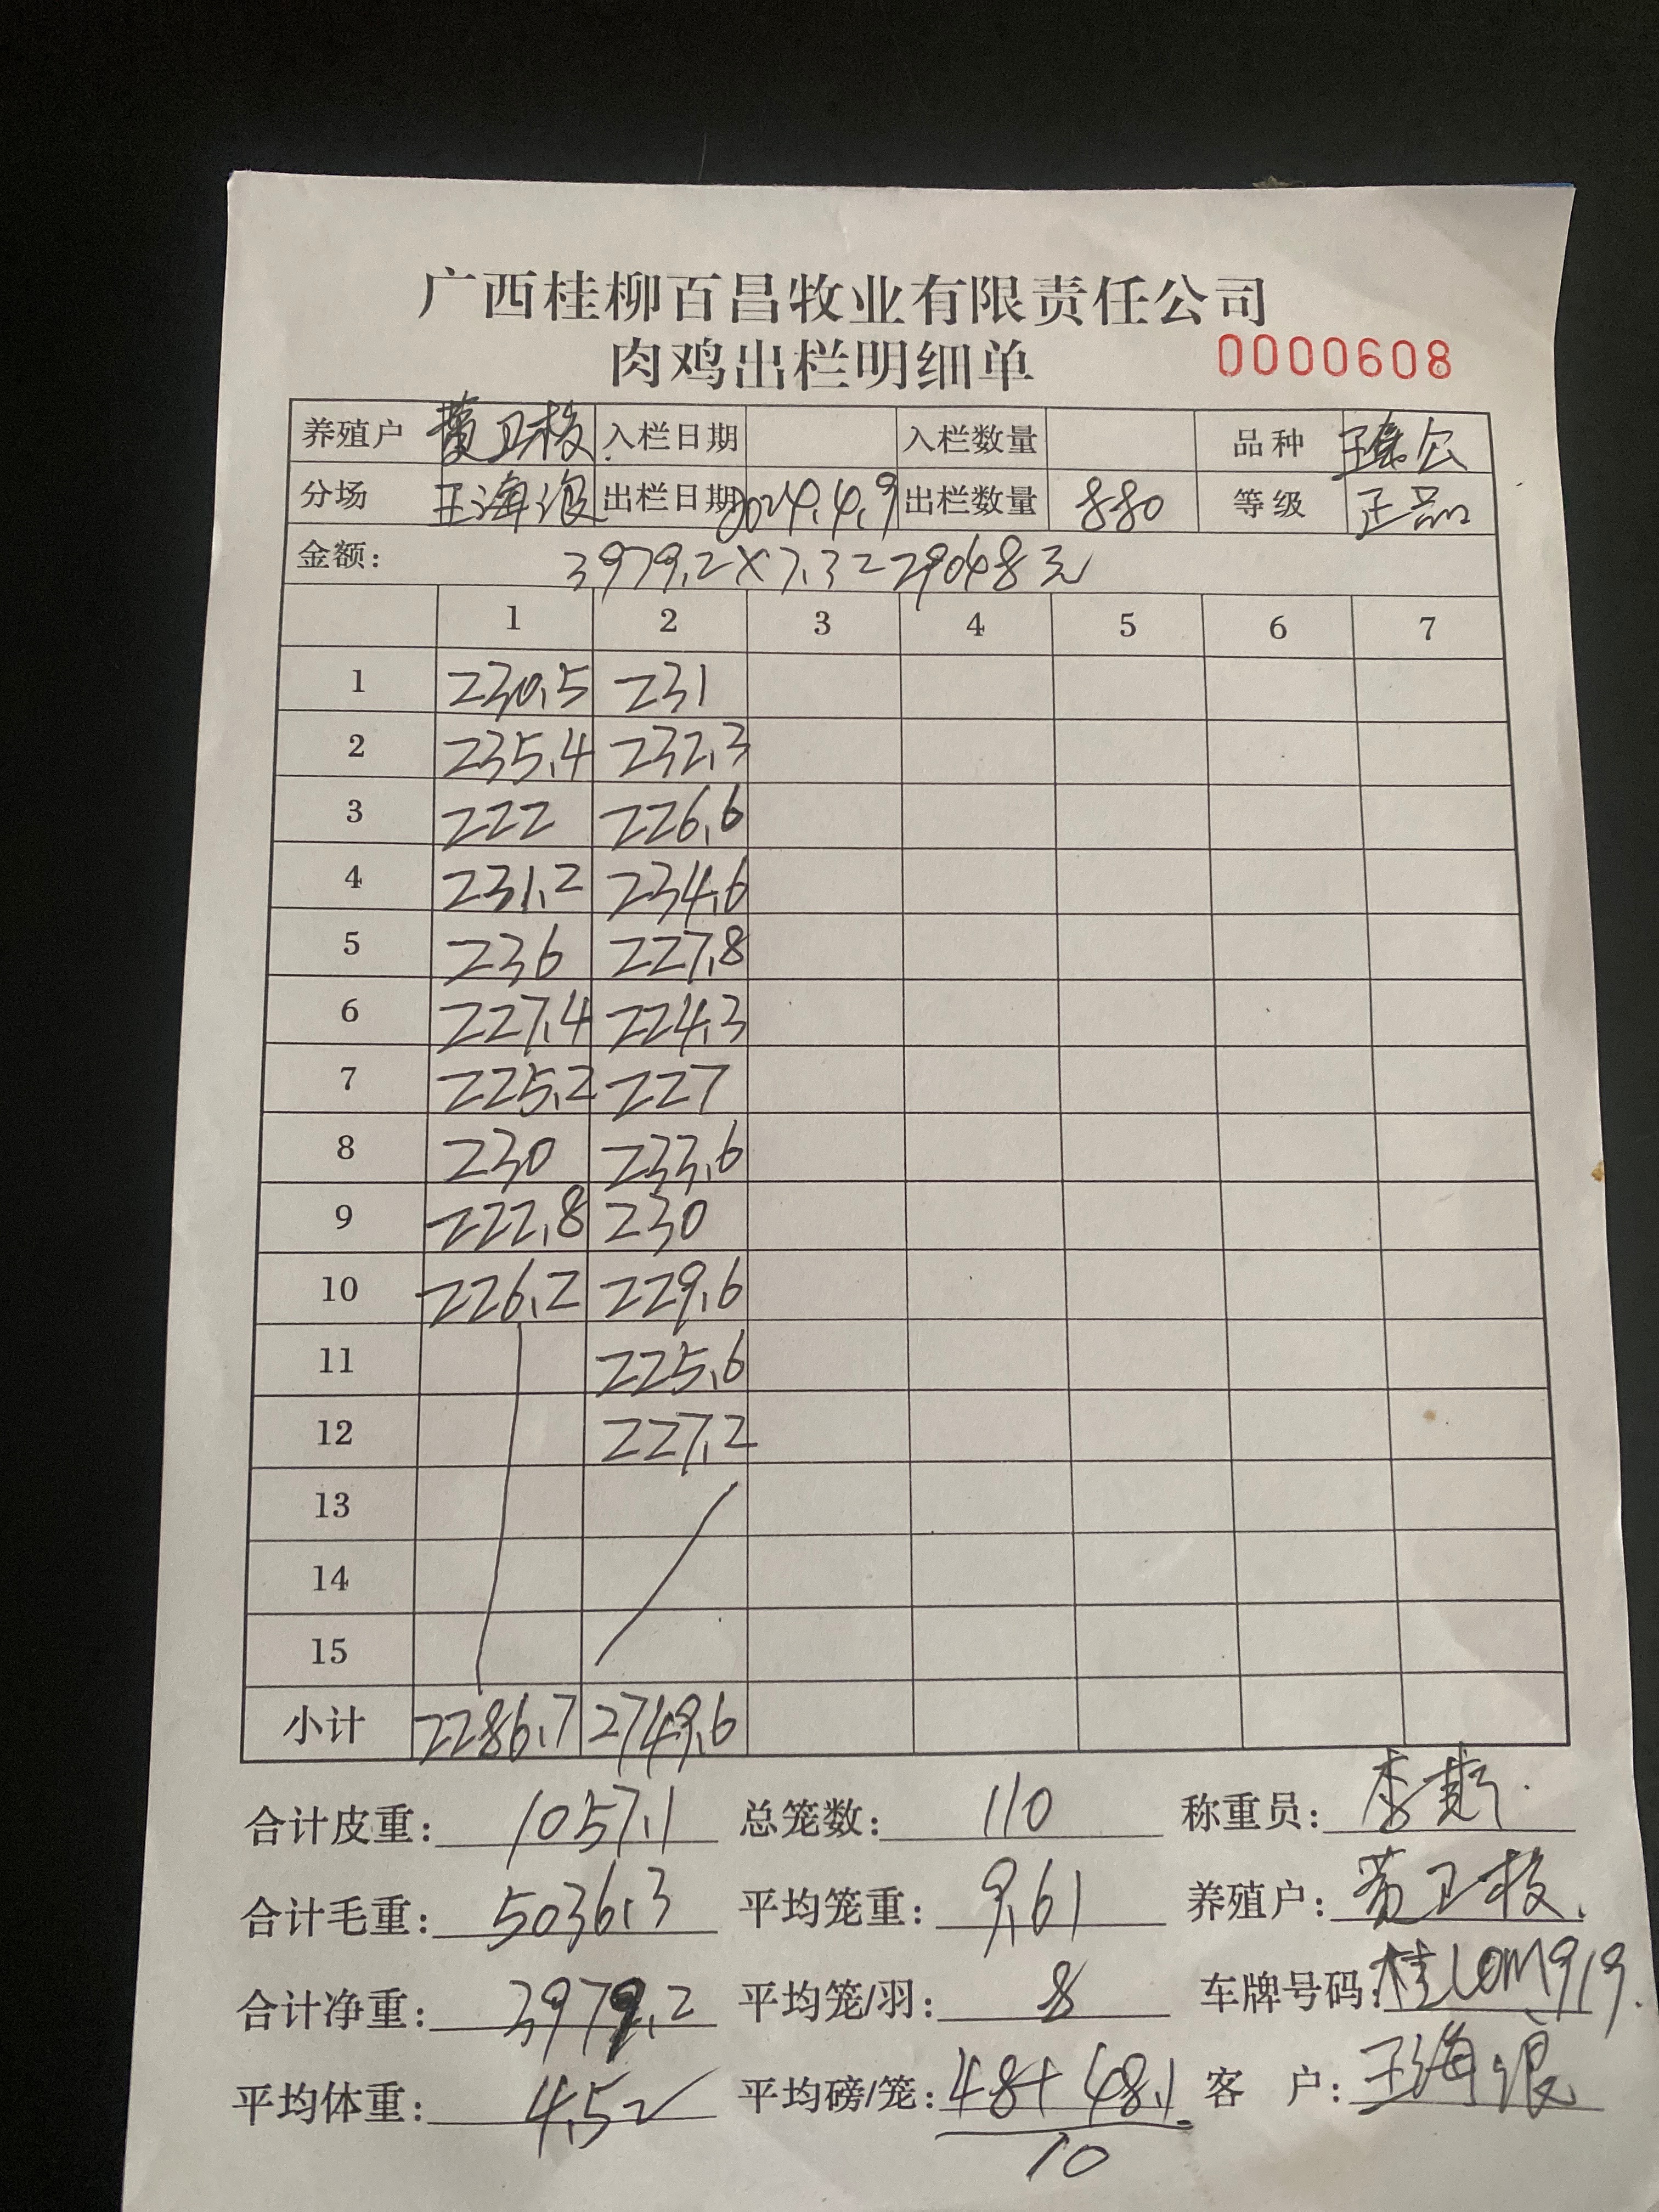 广西桂柳百昌牧业有限责任公司
肉鸡出栏明细单 0000608
养殖户 黄卫枝 入栏日期 入栏数量 品种 公
分场 王海浪 出栏日期 2024.4.9 出栏数量 880 等级 正品
金额: 3979.2×7.3=29048元
1 2 3 4 5 6 7
1 230.5 231
2 235.4 232.3
3 222 226.6
4 231.2 234.6
5 236 227.8
6 227.4 224.3
7 225.2 227
8 230 233.6
9 222.8 230
10 226.2 229.6
11 225.6
12 227.2
13
14
15
小计 2286.7 2749.6
合计皮重: 1057.1 总笼数: 110 称重员: 李
合计毛重: 5036.3 平均笼重: 9.61 养殖户: 黄卫枝
合计净重: 3979.2 平均笼/羽: 8 车牌号码: 桂L0M919
平均体重: 4.52 平均磅/笼: 48+48.1 客 户: 王海浪
10